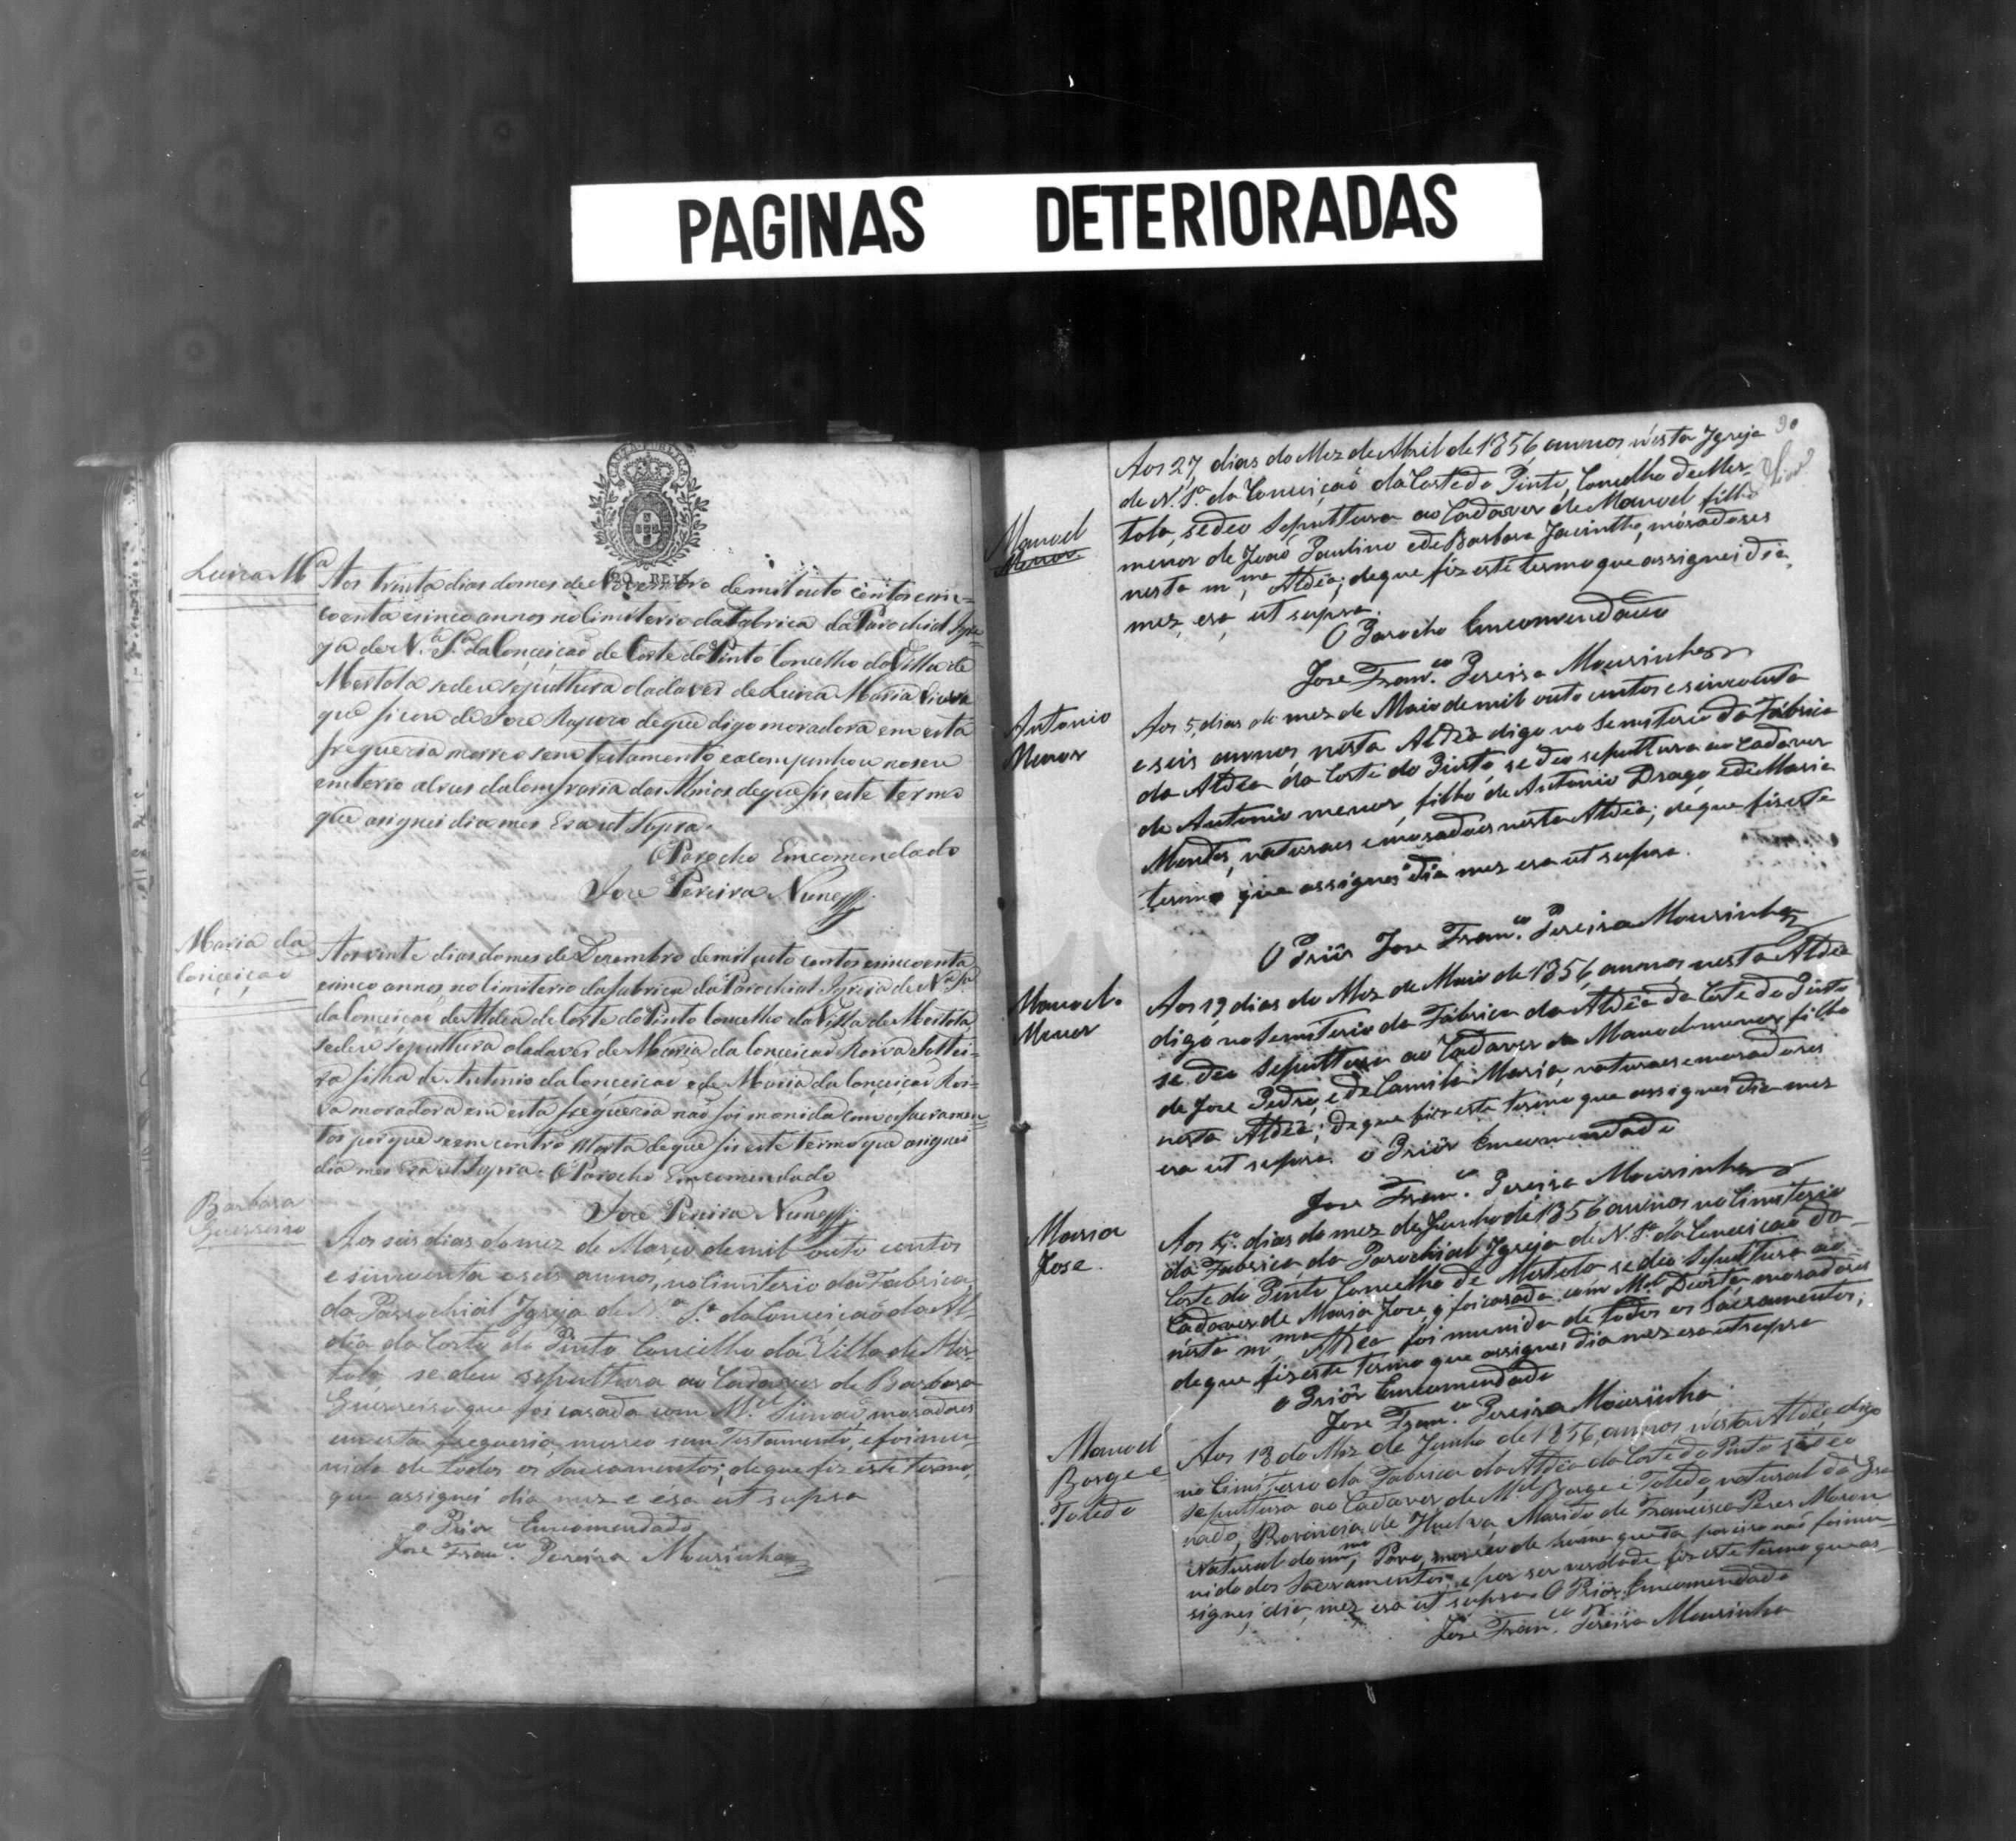 PAGINAS DETERIORADAS
CAUZA PUBLICA
20 REIS
Luzia M.ª
Aos trinta dias do mes de Novembro de mil outo centos cin=
coenta e sinco annos no Cimiterio da Fabrica da Parochial Igre=
ja de N.ª S.ª da Conceicaõ de Corte do Pinto Concelho da Villa de
Mertola se deu sepulttura o Cadaver de Luzia Maria Viuva
que ficou de Joze de que digo moradora em esta
freguezia morreo sem testamento e acompanhou no seu
enterro a Crus da Comfraria das Almas de que fis este termo
que asignei dia mes Era ut Supra.
O Parocho Emcomendado
Joze Pereira Nunes
Maria da
Conçeiçaõ
Aos vinte dias do mes de Dezembro de mil outo centos e sincoenta
e sinco annos no Cimiterio da fabrica da Parochial Igreja de N.ª S.ª
da Conceicaõ de Aldea de Corte do Pinto Concelho da Villa de Mertola,
se deu sepulttura o Cadaver de Maria da Conceicaõ Soltei=
ra filha de Antonio da Conceicaõ e de Maria da Conceicaõ
moradora em esta freguezia naõ foi monida com os sacramen=
tos porque se emcontro Morta de que fis este termo que asignei
dia mes Era ut Supra. O Parocho Emcomendado
Joze Pereira Nunes
Barbara
Guerreiro
Aos seis dias do mez de Março de mil outo centos
e sincoenta e seis annos, no Cimiterio da Fabrica
da Parrochial Igreja de N.ª S.ª da Conceicaõ da Al-
dêa da Corte do Pinto Concelho da Villa de Mer-
tola, se deu sepulttura ao Cadaver de Barbara
Guerreiro que foi casada com M.el Simaõ, moradores
em esta freguezia, morreo sem Testamento, e foi mu-
nida de todos os Sacramentos; de que fiz este termo,
que assignei dia mez e éra ut supra
o Prior Emcomendado
Jose Fran.co Pereira Mourinha
30
Manoel
Menor
Aos 27, dias do Mez de Abril de 1856, annos, n'esta Igreja
de N. S.ª da Conceiçaõ da Corte do Pinto, Concelho de Mer-
tola, se deo Sepulttura ao Cadaver de Manoel filho
menor de Joaõ Paulino e de Barbara Jacintha, moradores
nesta m.ma Aldêa; de que fiz este termo que assignei dia
mez, era ut supra.
O Parocho Emcomendado
Jose Fran.co Pereira Mourinha
Antonio
Menor
Aos 5, dias do mez de Maio de mil outo centos e sincoenta
e seis annos, nesta Aldêa digo no Semiterio da Fábrica
da Aldêa da Corte do Pinto se deo sepulttura ao Cadaver
de Antonio menor, filho de Antonio Drago e de Maria
Mendes, naturaes e moradores nesta Aldêa; de que fiz este
termo que assignei dia mez era ut supra.
O Priôr Jose Fran.co Pereira Mourinha
Manoel
Menor
Aos 19, dias do Mez de Maio de 1856, annos nesta Aldêa
digo no Semiterio da Fábrica da Aldêa da Corte do Pinto
se deo Sepulttura ao Cadaver de Manoel menor filho
de Jose Pedro, e de Camila Maria, naturaes e moradores
nesta Aldêa; de que fiz este termo que assignei dia mez
era ut supra. o Priôr Emcomendado
Jose Fran.co Pereira Mourinha
Maria
Jose.
Aos dias do mez de Junho de 1856 annos no Cimiterio
da Fabrica da Parochial Igreja de N. S.ª da Conceicaõ da
Corte do Pinto Concelho de Mertola se deo Sepulttura ao
Cadaver de Maria Jose, q foi casada com M.el moradores
nesta m.ma Aldea foi munida de todos os Sacramentos;
de que fiz este termo que assignei dia mez era ut supra
o Priôr Emcomendado
Jose Fran.co Pereira Mourinha
Manoel
Borge e
Toledo
Aos 13 do Mez de Junho de 1856, annos n'esta Aldêa digo
no Cimiterio da Fabrica da Aldêa da Corte do Pinto se deo
Sepulttura ao Cadaver de M.el Borge e Toledo, natural da Gra
nado, Provincia de Huelva Marido de Francisca Peres Maron
Natural do m.mo Povo, morreo de huma queda por isso naõ foi mu-
nido dos Sacramentos, e por ser verdade fiz este termo que as-
signei, dia, mez, era ut supra. O Priôr Emcomendado
Jose Fran.co Pereira Mourinha